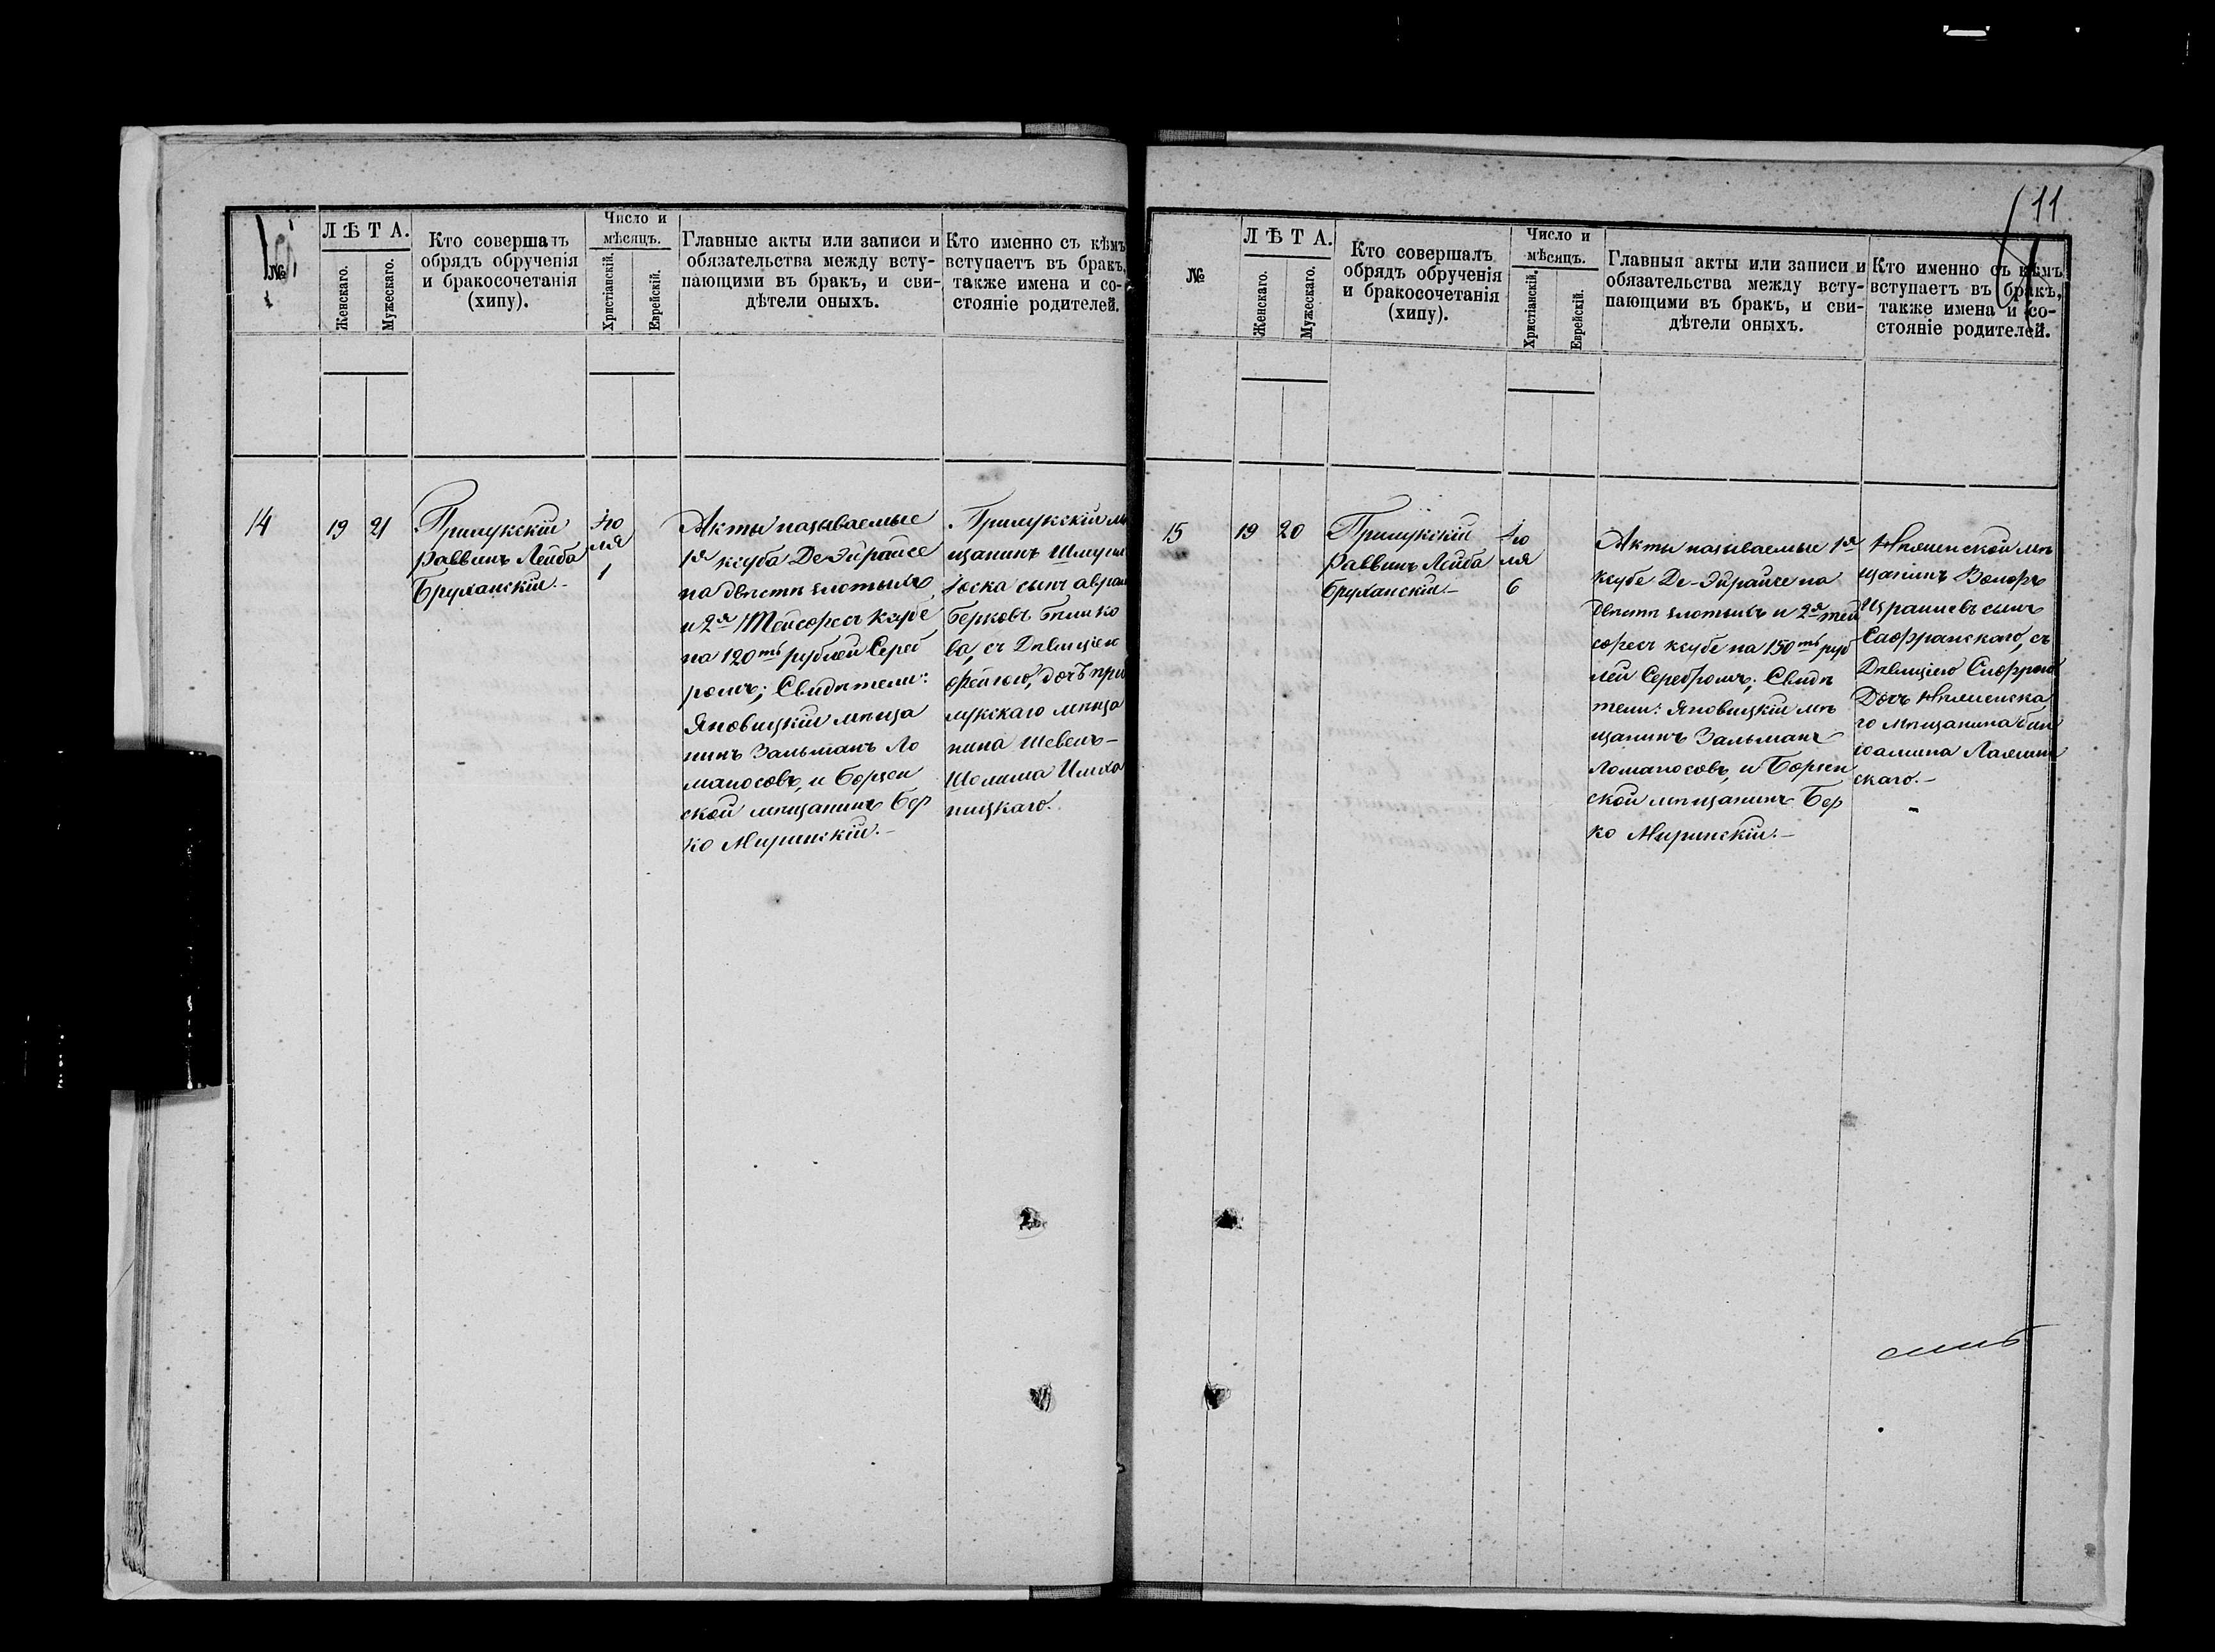 11
№
ЛѢТА.
Женскаго.
Мужескаго.
Кто совершалъ
обрядъ обрученія
и бракосочетанія
(хипу).
Число и
мѣсяцъ.
Христіанскій.
Еврейскій.
Главные акты или записи и
обязательства между всту-
пающими въ бракъ, и сви-
дѣтели оныхъ.
Кто именно съ кѣмъ
вступаетъ въ бракъ,
также имена и со-
стояніе родителей.
14
19
21
Прилукскій
Раввинъ Лейба
Бруханскій.-
Ію
ля
1
Акты называемые
1я ксуба Де-Эйрайсе
на двѣсти злотыхъ
и 2я Тейсофесъ
на 120ть рублей Сереб
ромъ; Свидѣтели:
Яновицкій мѣща
нинъ Зальманъ Ло
маносовъ, и Борзен
ской мѣщанинъ Бер
ко Миринскій.-
Прилукскій мѣ
щанинъ
Іоска сынъ
Берковъ
съ Дѣвицею
дочь при
лукскаго мѣща
нина
ницкаго.
№
ЛѢТА.
Женскаго.
Мужескаго.
Кто совершалъ
обрядъ обрученія
и бракосочетанія
(хипу).
Число и
мѣсяцъ.
Христіанскій.
Еврейскій.
Главныя акты или записи и
обязательства между всту-
пающими въ бракъ, и сви-
дѣтели оныхъ.
Кто именно съ кѣмъ
вступаетъ въ бракъ,
также имена и со-
стояніе родителей.
15
19
20
Прилукскій
Раввинъ Лейба
Бруханскій-
Ію
ля
6
Акты называемые 1я
ксубе Де-Эйрайсе на
двѣсти злотыхъ и 2я тей
софесъ ксубе на 150ть руб
лей Серебромъ; Свидѣ
тели: Яновицкій мѣ
щанинъ Зальманъ
Ломаносовъ, и Борзен
ской мѣщанинъ Бер
ко Миринскій.-
мѣ
щанинъ
сынъ
Сафранскаго, съ
Дѣвицею
Дочъ
го мѣщанина Бин
іомина
скаго.-